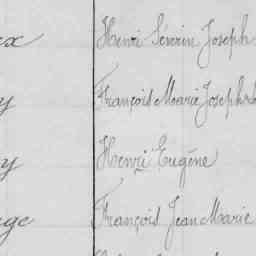 Henri Séverin Joseph
François Marie Joseph
Henri Eugène
François Jean Marie